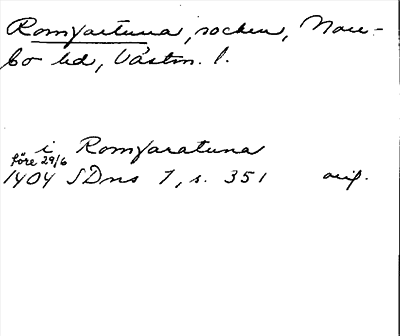 Romfartuna, socken, Norr-
bo hd, Västm. l.
i Romfaratuna
före 29/6
1404 SDns 1, s. 351 orig.